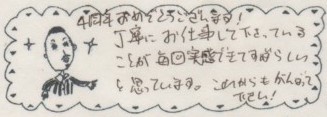 4周年おめでとうございます!
丁寧にお仕事して下さっている
ことが毎回実感できてすばらしい
と思っています。これからもがんばって
下さい!